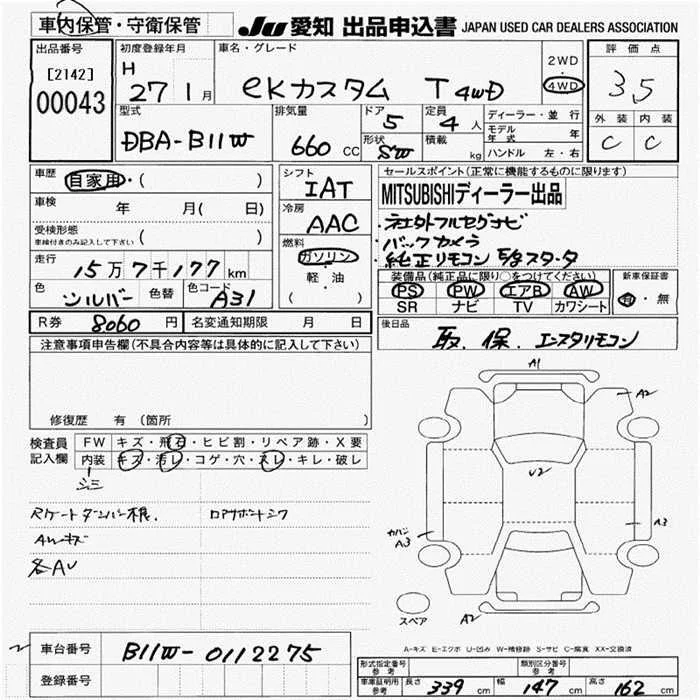 車内保管・守衛保管
JU 愛知 出品申込書 JAPAN USED CAR DEALERS ASSOCIATION
出品番号 [2142] 00043
初度登録年月 H 27 1月
車名・グレード eKカスタム T 4WD
2WD 4WD
評価点 3.5
外装 内装
C C
型式 DBA-B11W
排気量 660 CC
ドア 5
形状 SW
定員 4人
積載 kg
ディーラー・並行
モデル年式 年
ハンドル 左・右
車歴 自家用・( )
車検 年 月( 日)
受検形態 車検付きのみ記入して下さい ( )
走行 15万7千177km
色 シルバー 色替 色コード A31
シフト IAT
冷房 AAC
燃料 ガソリン・軽油 ( )
セールスポイント(正常に機能するものに限ります)
MITSUBISHIディーラー出品
・社外フルセグナビ
・バックカメラ
・純正リモコンE/gスタータ
装備品(純正品に限り○をつけてください)
PS PW エアB AW
SR ナビ TV カワシート
新車保証書 有・無
R券 8060円 名変通知期限 月 日
後日品 取.保.エンスタリモコン
注意事項申告欄(不具合内容等は具体的に記入して下さい)
修復歴 有 (箇所 )
検査員記入欄
FW キズ・飛石・ヒビ割・リペア跡・X要
内装 キズ・汚レ・コゲ・穴・スレ・キレ・破レ
シミ
Rゲートダンパー根. ロアサポートシワ
AWキズ
各AU
A1
A2
U2
カバンA3
A3
A2
スペア
A-キズ E-エクボ U-凹み W-補修跡 S-サビ C-腐食 XX-交換済
車台番号 B11W-0112275
登録番号
形式指定番号 参考
類別区分番号 参考
車庫証明用 参考 長さ 339cm 幅 147cm 高さ 162cm